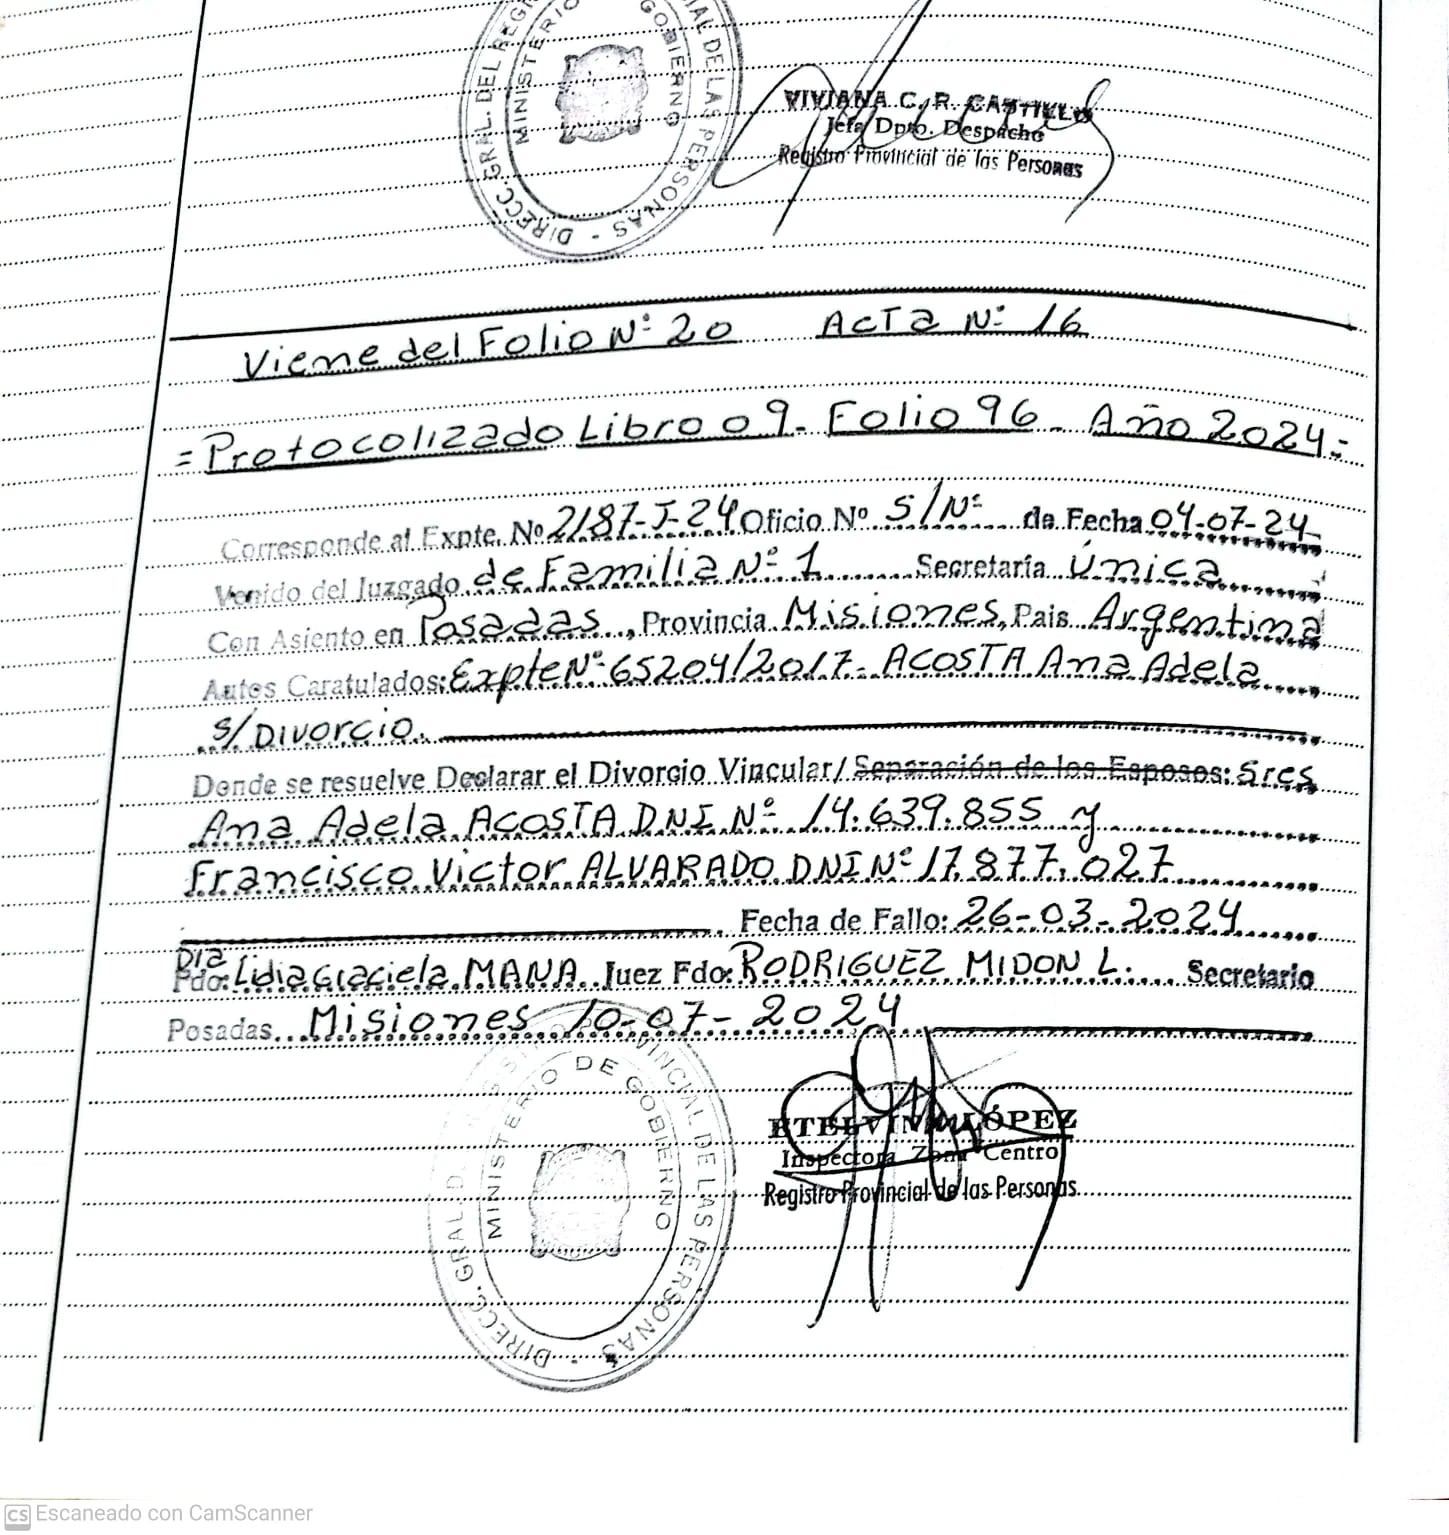 DIRECC. GRAL. DEL REG
MINISTERIO
GOBIERNO
AL DE LAS PERSONAS -
VIVIANA C. R. CASTILLO
Jefa Dpto. Despacho
Registro Provincial de las Personas
Viene del Folio Nº 20 ACTA Nº 16
= Protocolizado Libro 09. Folio 96. Año 2024.=
Corresponde al Expte. Nº 2187-J-24 Oficio Nº S/Nº de Fecha 04-07-24
Venido del Juzgado de Familia Nº 1 Secretaría Única
Con Asiento en Posadas, Provincia Misiones, Pais Argentina
Autos Caratulados: Expte Nº 65204/2017- ACOSTA Ana Adela
s/ Divorcio.
Donde se resuelve Declarar el Divorcio Vincular/ Separación de los Esposos: Sres
Ana Adela ACOSTA DNI Nº 14.639.855 y
Francisco Victor ALVARADO DNI Nº 17.877.027
Fecha de Fallo: 26-03-2024
Dra
Fdo: Lidia Graciela MANA Juez Fdo: RODRIGUEZ MIDON L. Secretario
Posadas Misiones 10-07-2024
DIRECC. GRAL. D
VINCIAL DE LAS PERSONAS -
MINISTERIO DE GOBIERNO
ETELVINA LÓPEZ
Inspectora Zona Centro
Registro Provincial de las Personas
CS Escaneado con CamScanner